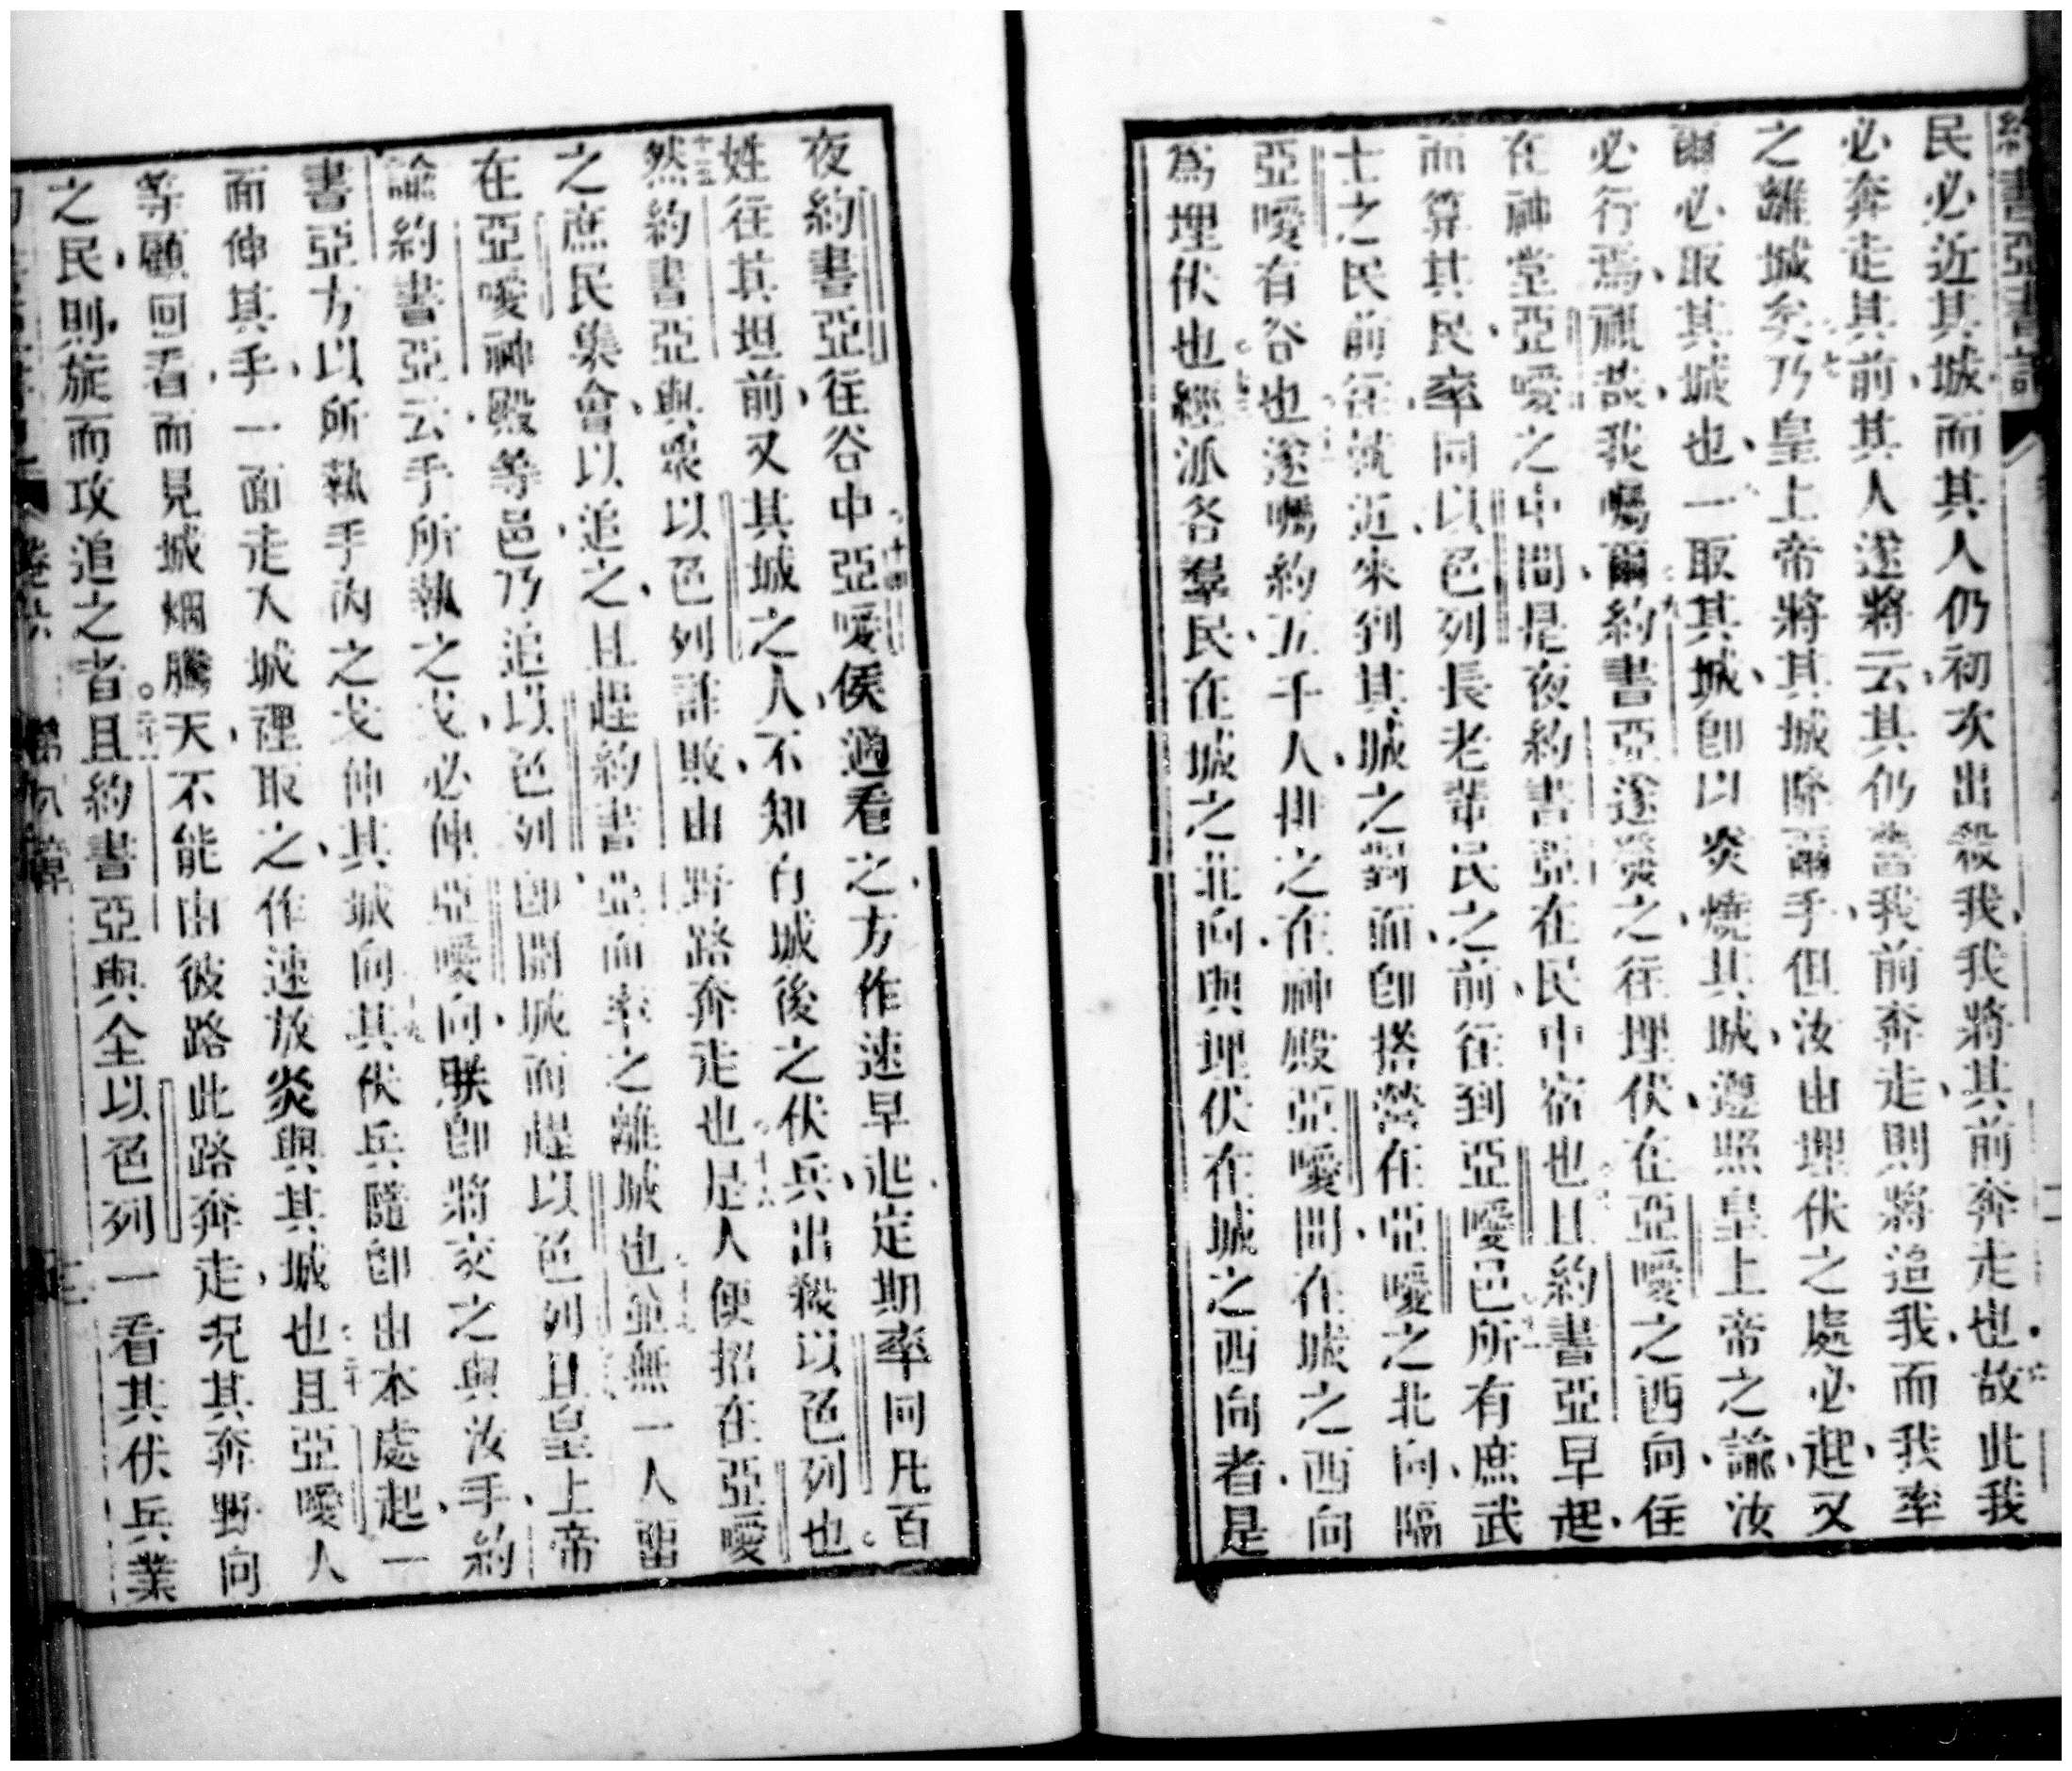 約書亞書記
民必近其城而其人仍初次出殺我我將其前奔走也故此我
必奔走其前其人遂將云其仍當我前奔走則將追我而我率
之離城矣乃皇上帝將其城降爾手但汝由埋伏之處必起又
爾必取其城也一取其城卽以炎燒其城遵照皇上帝之諭汝
必行焉愼哉我囑爾約書亞遂發之往埋伏在亞噯之西向住
在神堂亞噯之中間是夜約書亞在民中宿也且約書亞早起
而算其民率同以色列長老輩民之前往到亞噯邑所有庶武
士之民前往就近來到其城之對面卽搭營在亞噯之北向隔
亞噯有谷也遂囑約五千人排之在神殿亞噯間在城之西向
爲埋伏也經派各羣民在城之北向與埋伏在城之西向者是
夜約書亞往谷中亞噯侯過看之方作速早起定期率同凡百
姓往其坦前又其城之人不知有城後之伏兵出殺以色列也
然約書亞與衆以色列詐敗由野路奔走也是人便招在亞噯
之庶民集會以追之且趕約書亞而率之離城也並無一人留
在亞噯神殿等邑乃追以色列卽開城而趕以色列且皇上帝
諭約書亞云手所執之戈必伸亞噯向朕卽將交之與汝手約
書亞方以所執手內之戈伸其城向其伏兵隨卽出本處起一
面伸其手一面走入城裡取之作速放炎與其城也且亞噯人
等顧回看而見城烟騰天不能由彼路此路奔走況其奔野向
之民則旋而攻追之者且約書亞與全以色列一看其伏兵業